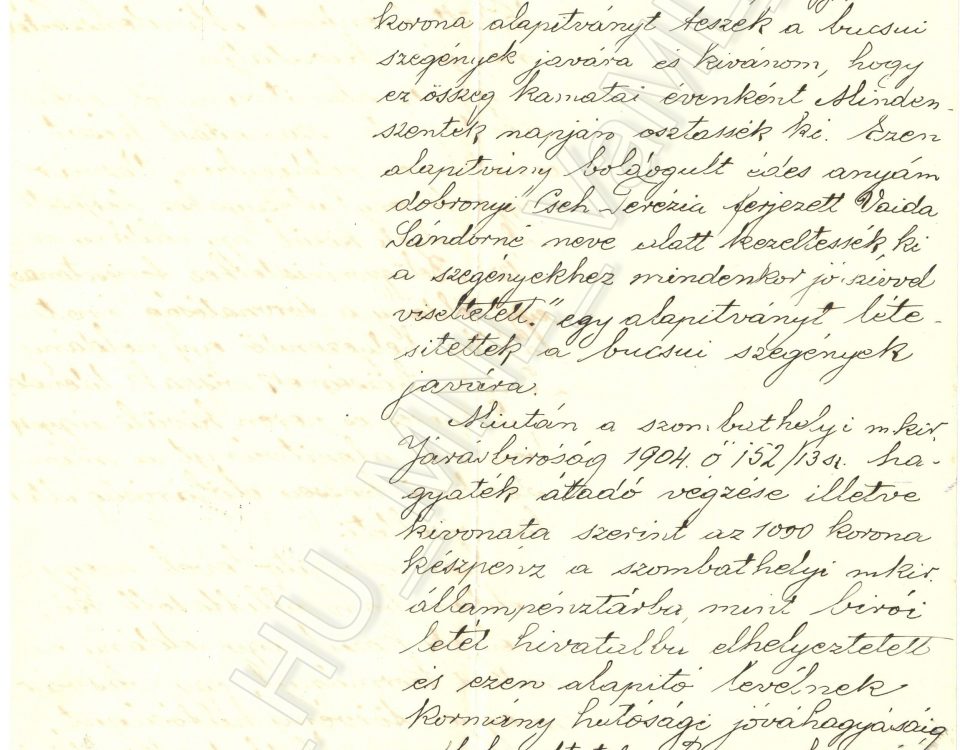 korona alapitványt teszek a bucsui
szegények javára és kivánom, hogy
ez összeg kamatai évenként Minden-
szentek napján osztassék ki. Ezen
alapitvány boldogult édes anyám
dobronyi Cseh Terézia férjezett Vajda
Sándorné neve alatt kezeltessék ki
a szegényekhez mindenkor jó szivvel
viseltetett." egy alapitványt léte-
sitettek a bucsui szegények
javára.
Miután a szombathelyi mkir.
Járásbiróság 1904. Ö 152/13 sz. ha-
gyaték átadó végzése illetve
kivonata szerint az 1000 korona
készpénz a szombathelyi mkir.
állampénztárba, mint birói
letét hivatalba elhelyeztetett
és ezen alapitó levélnek
kormány hatósági jóváhagyásáig
HU_MNL_VaML